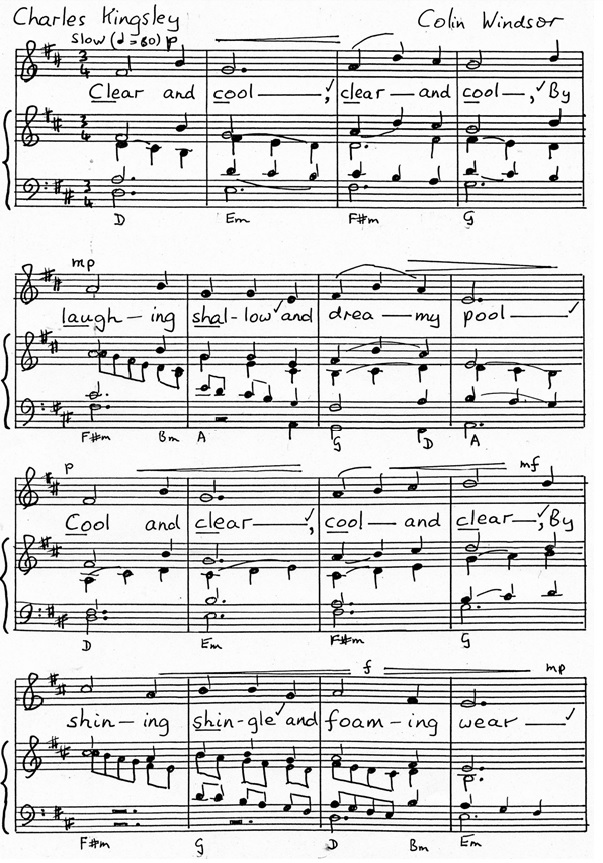 Charles Kingsley Colin Windsor
Slow (𝅗𝅥 = 80) p
3/4
Clear and cool —, clear — and cool —, By
3/4
3/4
D Em F#m G
mp
laugh-ing shal-low and drea—my pool —
F#m Bm A G D A
p mf
Cool and clear —, cool — and clear —, By
D Em F#m G
f mp
shin-ing shin-gle and foam-ing wear —
F#m G D Bm Em